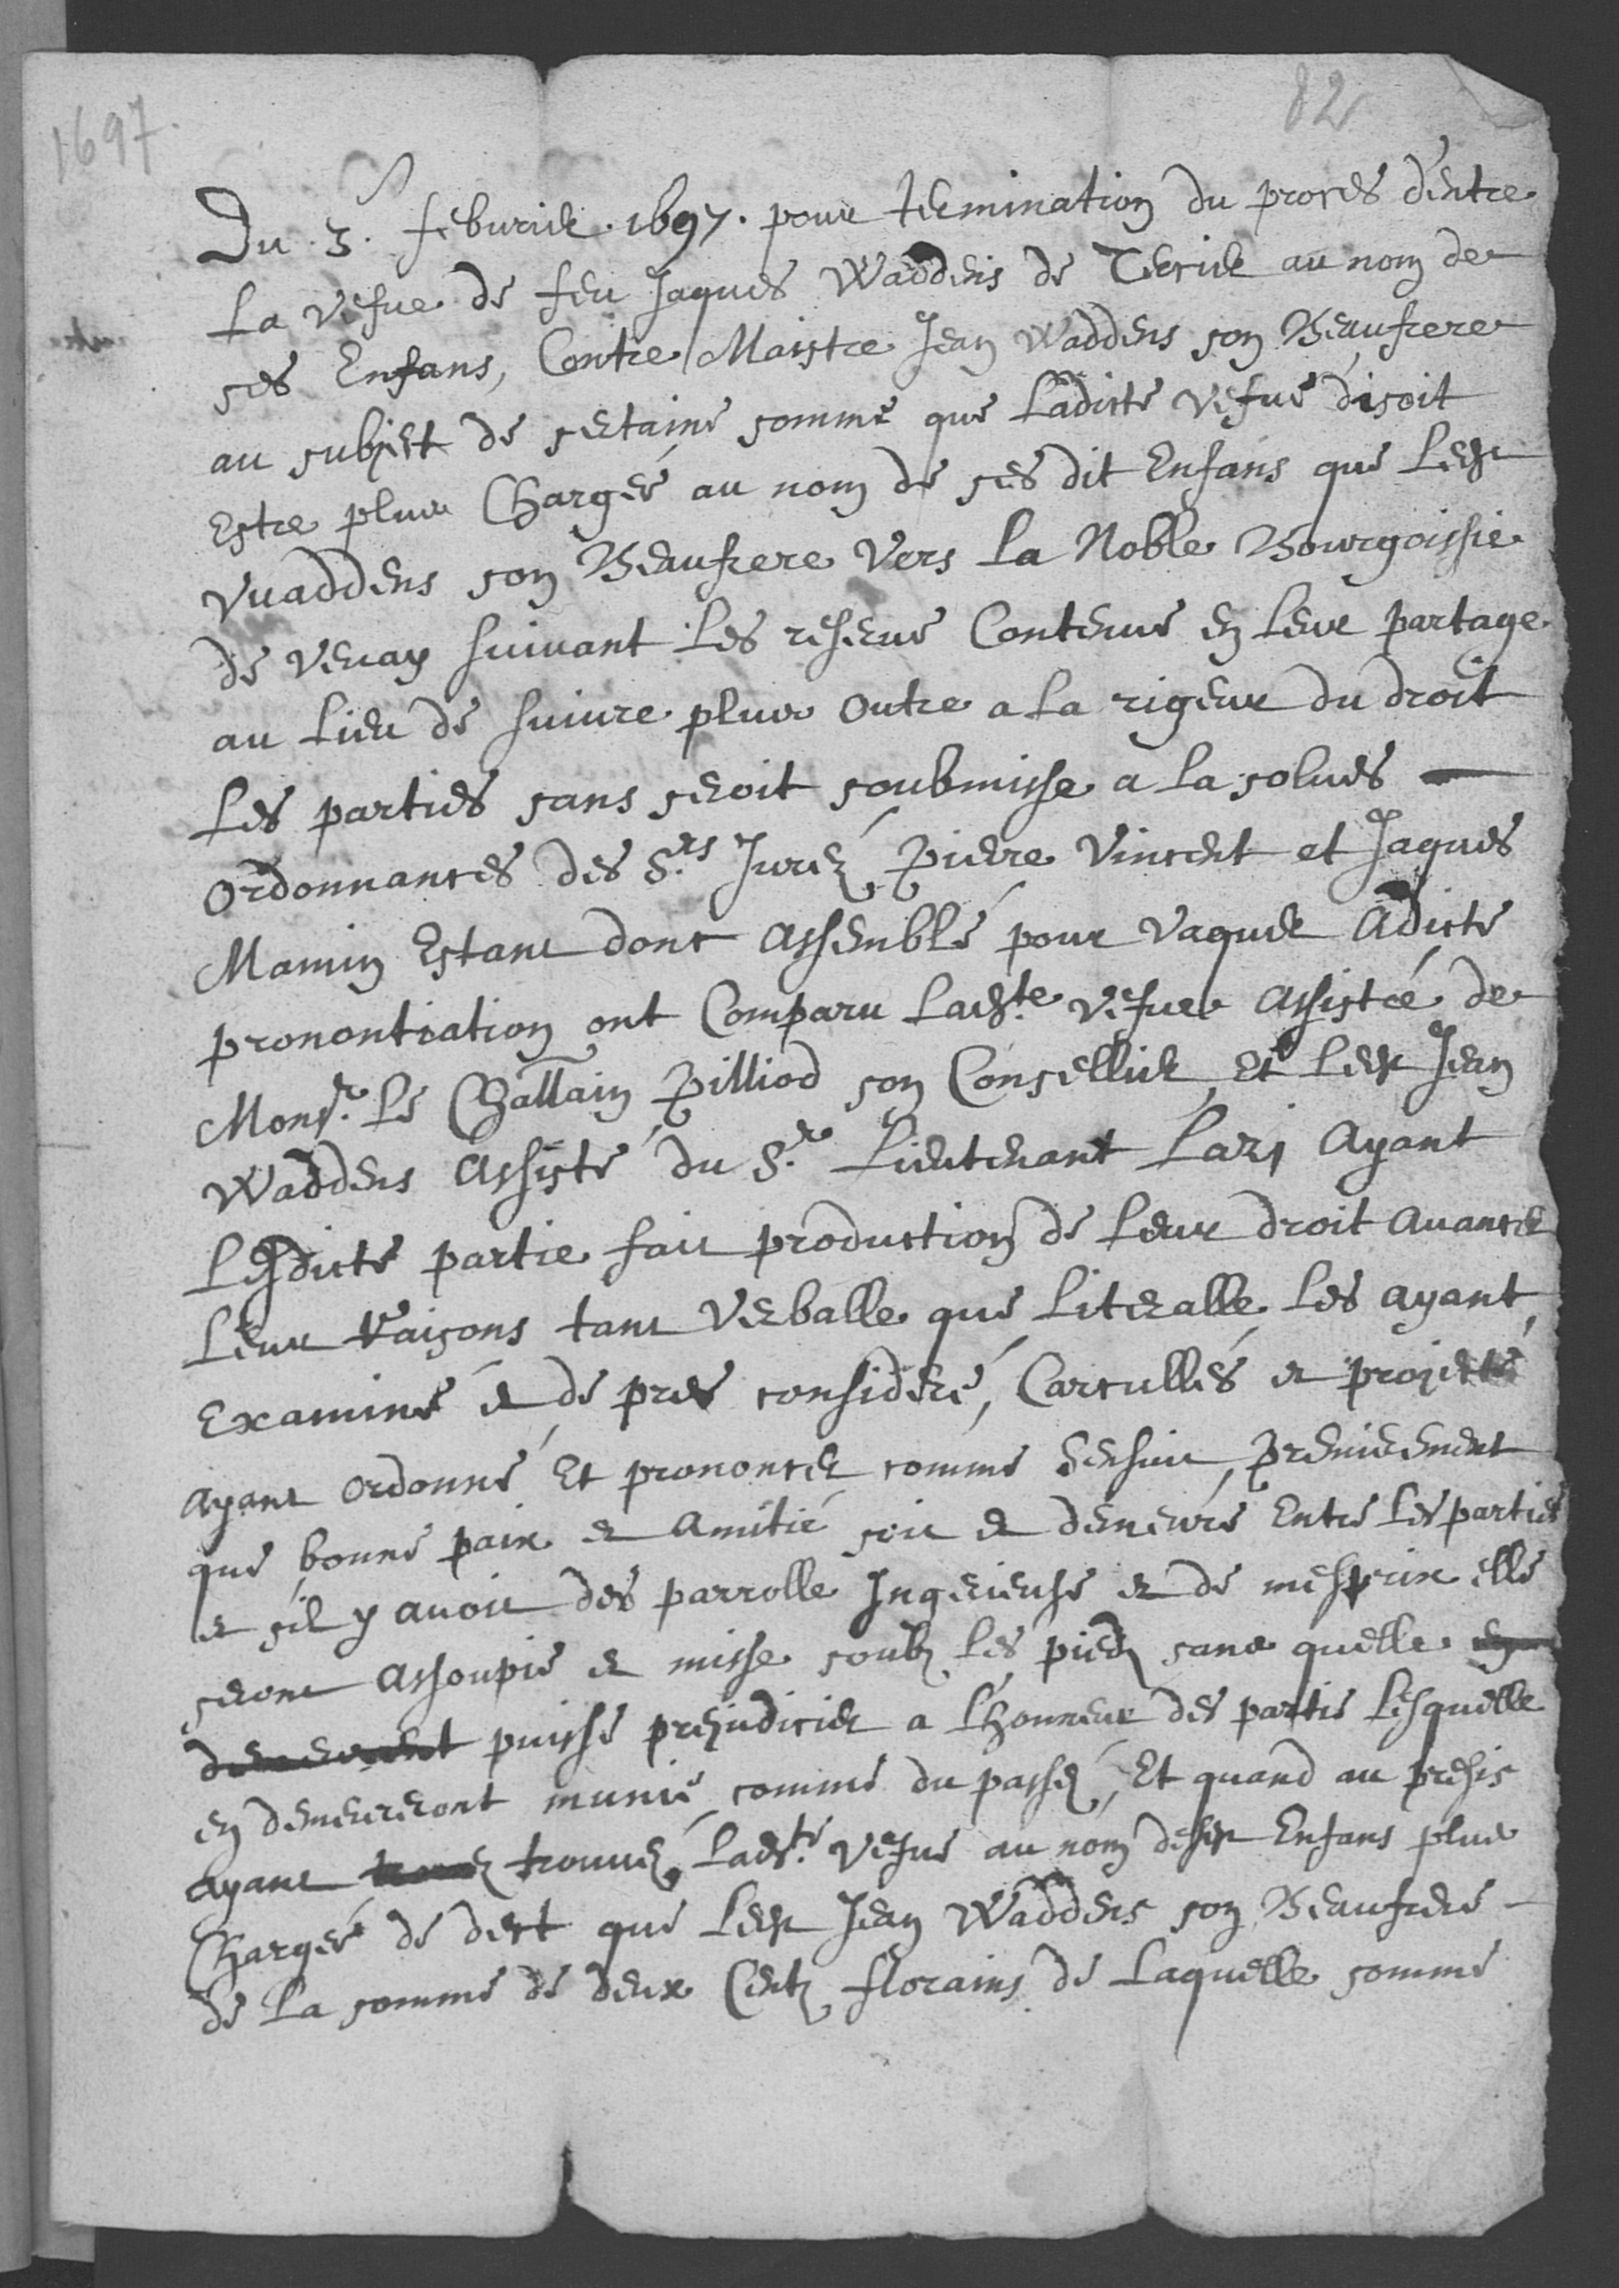 1697.
82
Du 3. feburier. 1697. pour termination du proces dentre
La vefue de feu Jaques Waddens de Tercier au nom de
ses Enfans, Contre Maistre Jean Waddens son Beaufrere
au subject de certaine somme que Ladicte vefue disoit
Estre plus Chargéé au nom de ses dit Enfans que Ledt
Vuaddens son Beaufrere Vers La Noble Bourgoissie
de Veuay suiuant Les reserue Contenue en Leur partage
au Lieu de suiure plus outre a La rigeur du droit
Les parties sans seroit soubmisse a La solues
ordonnances des Srs Jurez Pierre Vincent et Jaques
Mamin Estant donc assemblé pour vaquer adicte
pronontiation ont Comparu Ladte vefue assistéé de
Monsr. Le Chattain Pilliod son Consellier Et Ledt Jean
Waddens assisté du Sr. Lieutenant Lari Ayant
Lesdicte partie fait production de Leur droit auancer
Leur Raisons tant Verballe que Literalle Les ayant,
Examiné et de pres consideré, Carcullés et projecté
ayant ordonné Et prononcer comme Sensuit, premierement
que bonne paix et amitié soit et demeure Entre Les parties
et s'il y auoit des parrolle Ingerieuse et de mesprix elle
seront assoupie et misse soubz Les piedz sans quelle en
demeurent puisse prejudicier a L'honneur des partie Lesquelle
en demeureront munie comme du passez, Et quand au presis
ayant trouuez Ladte vefue au nom desdt Enfans plus
Chargéé de dect que Ledt Jean Waddens son Beaufrere
de La somme de deux Centz florains de Laquelle somme